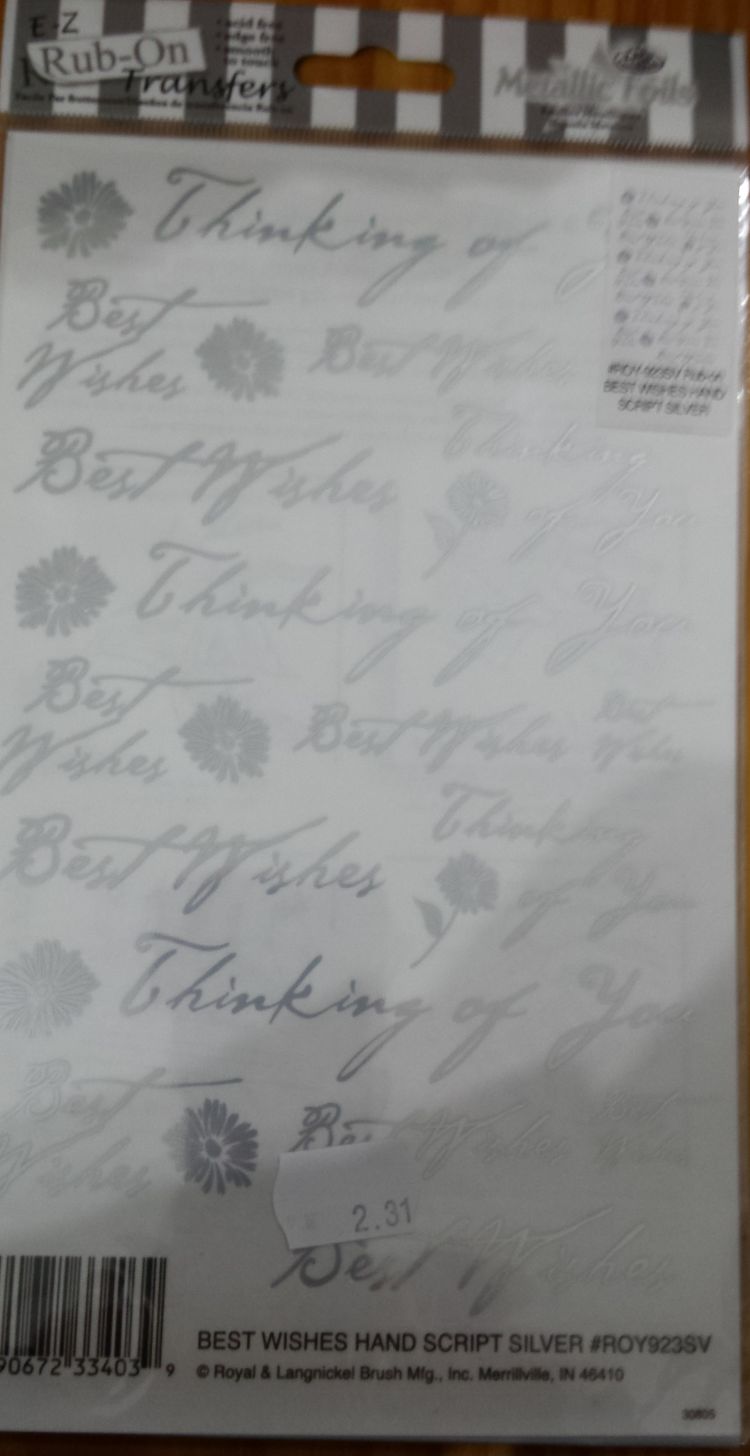 E-Z
Rub-On
Transfers
• acid free
• edge free
• smooth
to touch
Metallic Foils
Thinking of
Best
Wishes
Best Wishes
#ROY-923SV Rub-on
BEST WISHES HAND
SCRIPT SILVER
Best Wishes
Thinking
of You
Thinking of You
Best
Wishes
Best Wishes
Best
Wishes
Best Wishes
Thinking
of You
Thinking of You
Best
Wishes
Best Wishes
Best
Wishes
2.31
Best Wishes
90672 33403 9
BEST WISHES HAND SCRIPT SILVER #ROY923SV
© Royal & Langnickel Brush Mfg., Inc. Merrillville, IN 46410
30805